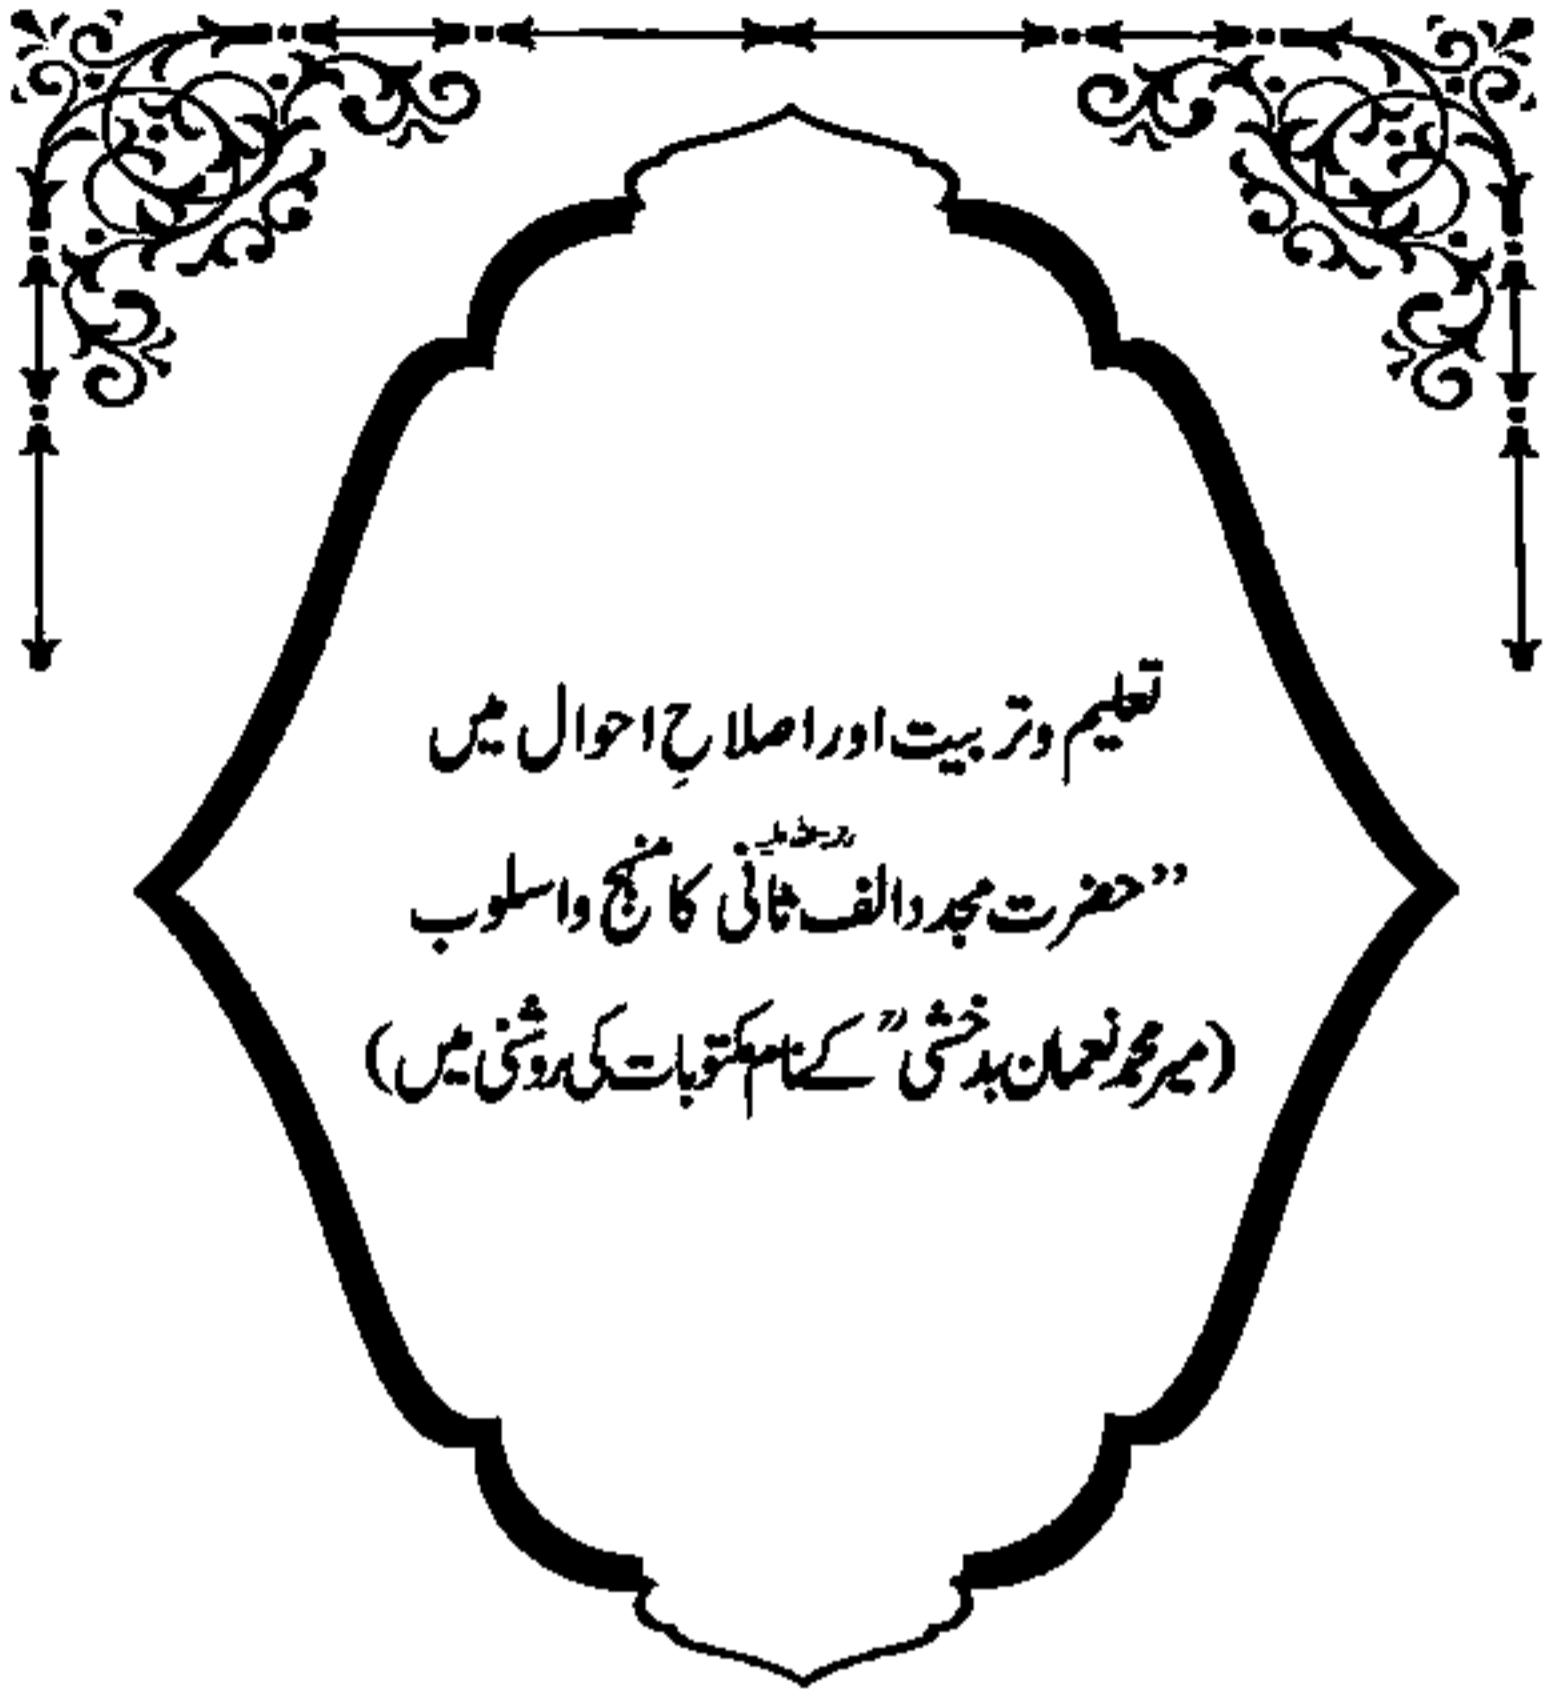 تعلیم وتربیت اور اصلاحِ احوال میں
”حضرت مجدد الف ثانی رحمۃ اللہ علیہ کا منہج واسلوب
(میر محمد نعمان بدخشیؒ کے نام مکتوبات کی روشنی میں)